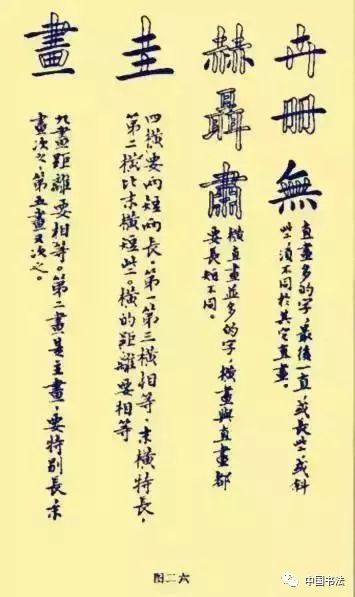 卉册無
直畫多的字，最後一直，或長些，或斜
些，須不同於其它直畫。
赫聶肅
横直畫並多的字，横畫與直畫都
要長短不同。
圭
四横要兩短兩長。第一第三横相等，末横特長，
第二横比末横短些。横的距離要相等
畫
九畫距離要相等。第二畫是主畫，要特别長，末
畫次之，第五畫又次之。
图二六
中国书法